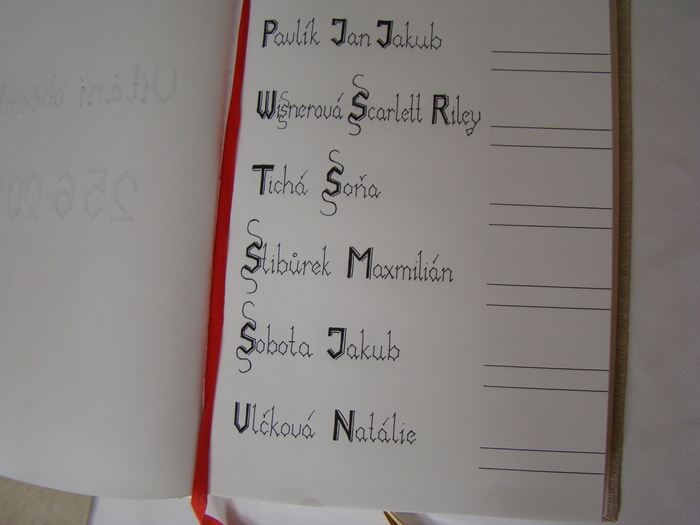 Pavlík Jan Jakub
Wisnerová Scarlett Riley
Tichá Soňa
Slibůrek Maxmilián
Sobota Jakub
Vlčková Natálie